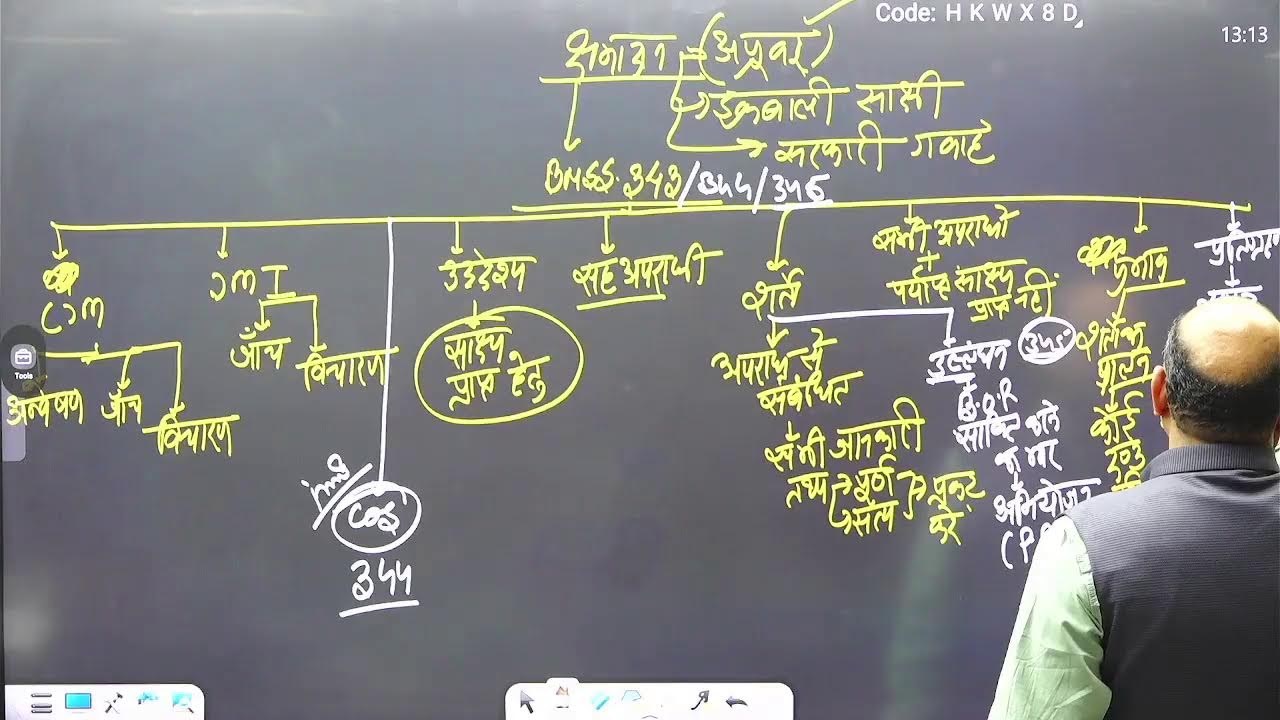 Code: H K W X 8 D
13:13
क्षमादान (अप्रूवर)
इकबाली साक्षी
सरकारी गवाह
BNSS. 343/344/345
CJM
अन्वेषण
जाँच
विचारण
JM I
जाँच
विचारण
COS
344
उद्देश्य
साक्ष्य
प्राप्त हेतु
सह अपराधी
शर्ते
अपराध से
संबंधित
सभी जानकारी
तथ्य पूर्ण
सत्य
प्रकट
करे
उल्लंघन
345
B.O.P
साबित करने
का भार
अभियोजन
सभी अपराधो
+
पर्याप्त साक्ष्य
प्राप्त नहीं
प्रभाव
शर्तो का
पालन
कोई
Tools